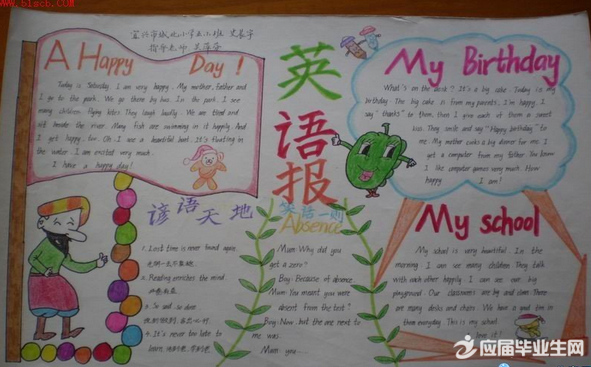 www.blscb.com
A Happy Day!
Today is Saturday. I am very happy. My mother, father and
I go to the park. We go there by bus. In the park. I see
many children flying kites. They laugh loudly. We are tired and
sit beside the river. Many fish are swimming in it happily. And
I get happy, too. Oh I see a beautiful boat. It's floating in
the water. I am excited very much.
I have a happy day!
英语报
My Birthday
What's on the desk? It's a big cake. Today is my
birthday. The big cake is from my parents. I'm happy. I
say "thanks" to them, then I give each of them a sweet
kiss. They smile and say "Happy birthday" to
me. My mother cooks a big dinner for me. I
get a computer from my father. You know
I like computer games very much. How
happy I am!
谚语天地
1. Lost time is never found again.
2. Reading enriches the mind.
3. So said, so done
4. It's never too late to
learn.
笑话一则
Absence
Mum: Why did you
get a zero?
Boy: Because of absence.
Mum: You meant you were
absent from the test?
Boy: No, but the one next to
me was.
Mum: you...
My school
My school is very beautiful. In the
morning. I can see many children They talk
with each other happily. I can see our big
playground. Our classrooms are big and clean. There
are many desks and chairs. We have a good time in
them everyday. This is my school.
I love it!
应届毕业生网